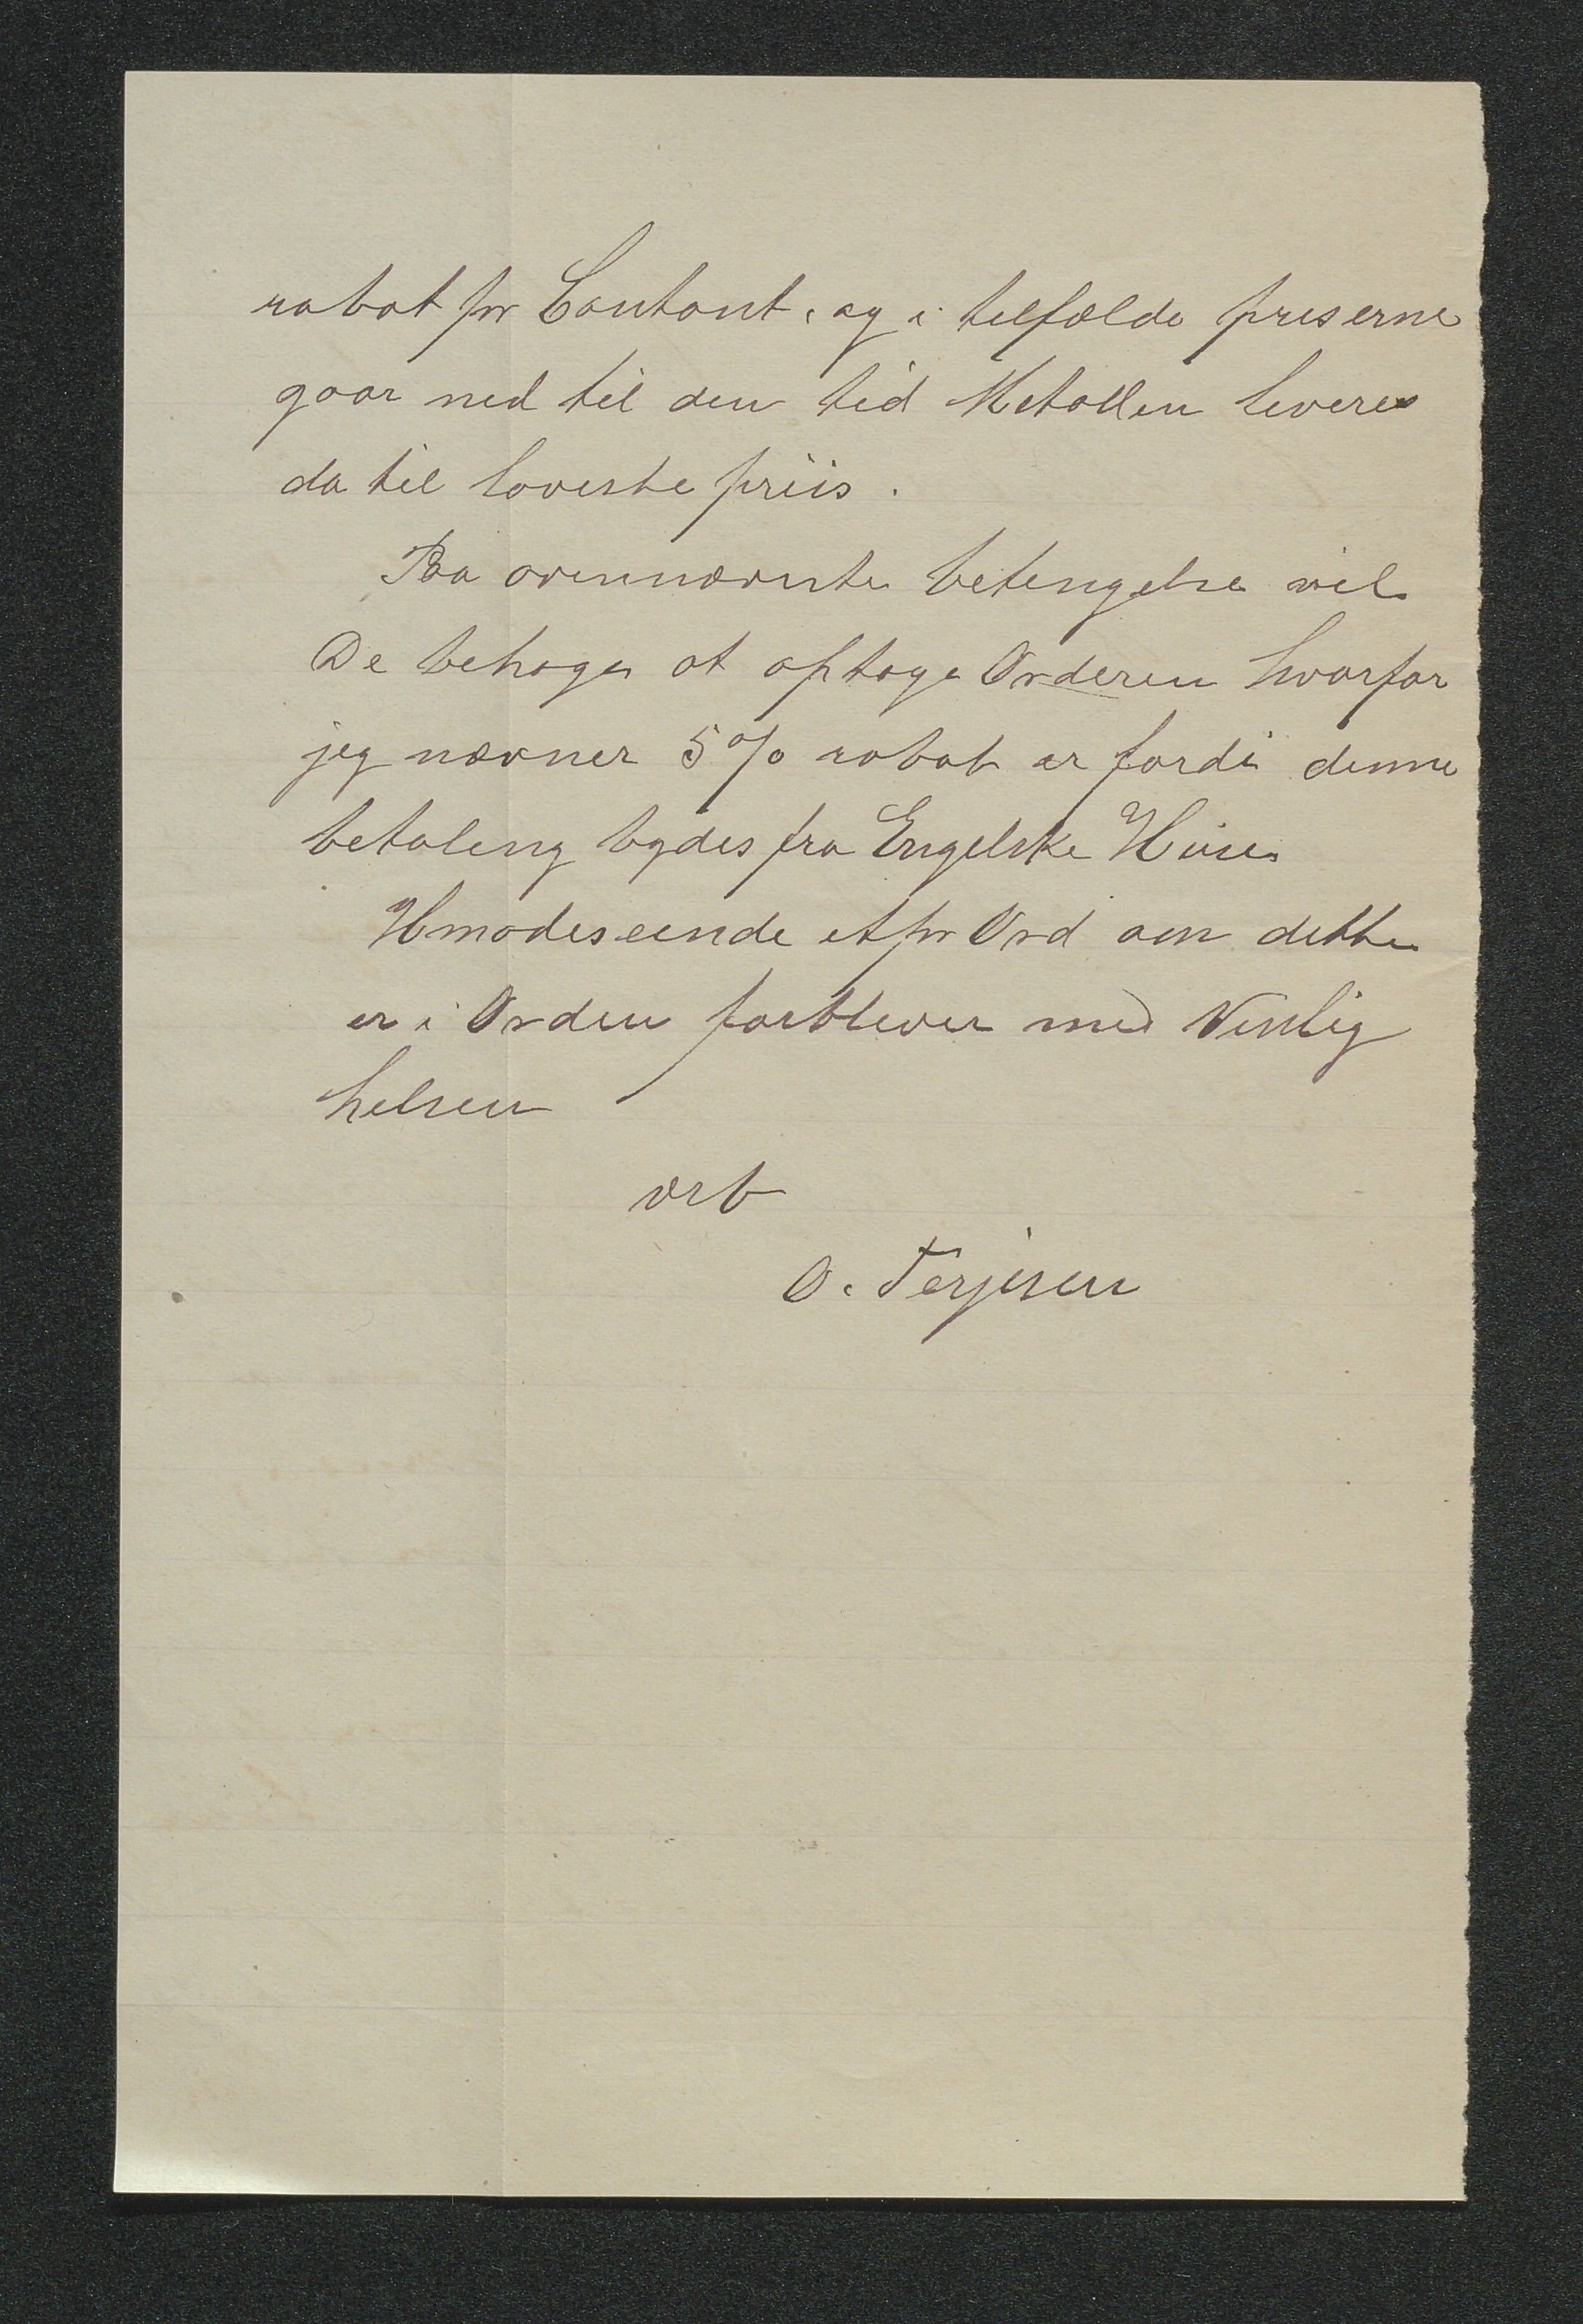 rabat pr Contant, og i tilfælde priserne
gaar ned til den tid Metallen leveres
da til laveste priis.
Paa ovennævnte betingelse vil
De behage at optage Orderen hvorfor
jeg nævner 5 % rabat er fordi denne
betaling bydes fra Engelske Huse
Imødeseende et pr Ord om dette
er i Orden forbliver med Venlig
helsen
ærb
O. Terjesen